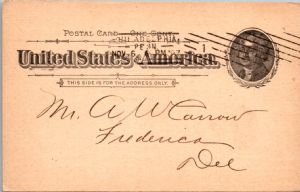 POSTAL CARD — ONE CENT.
PHILADELPHIA,
NOV 6
1
United States of America.
THIS SIDE IS FOR THE ADDRESS ONLY.
Mr. A W Carrow
Frederica
Del